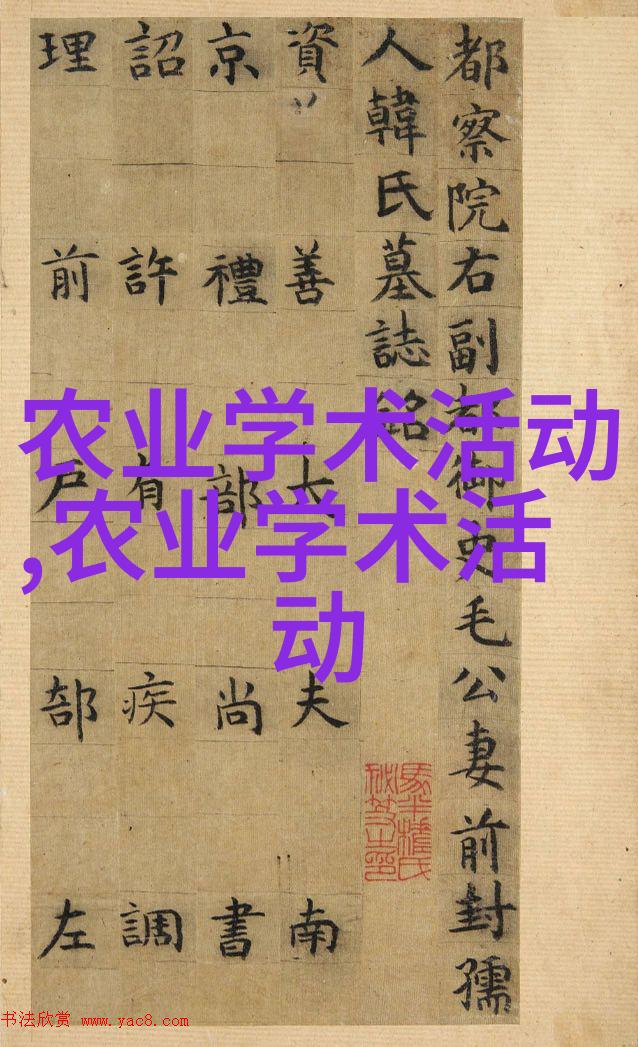 都察院右副都御史毛公妻前封孺
人韓氏墓誌銘
資善大夫南
京禮部尚書
詔許有疾調
理前戶部左
农业学术活动
,农业学术活
动
书法欣赏 www.yac8.com